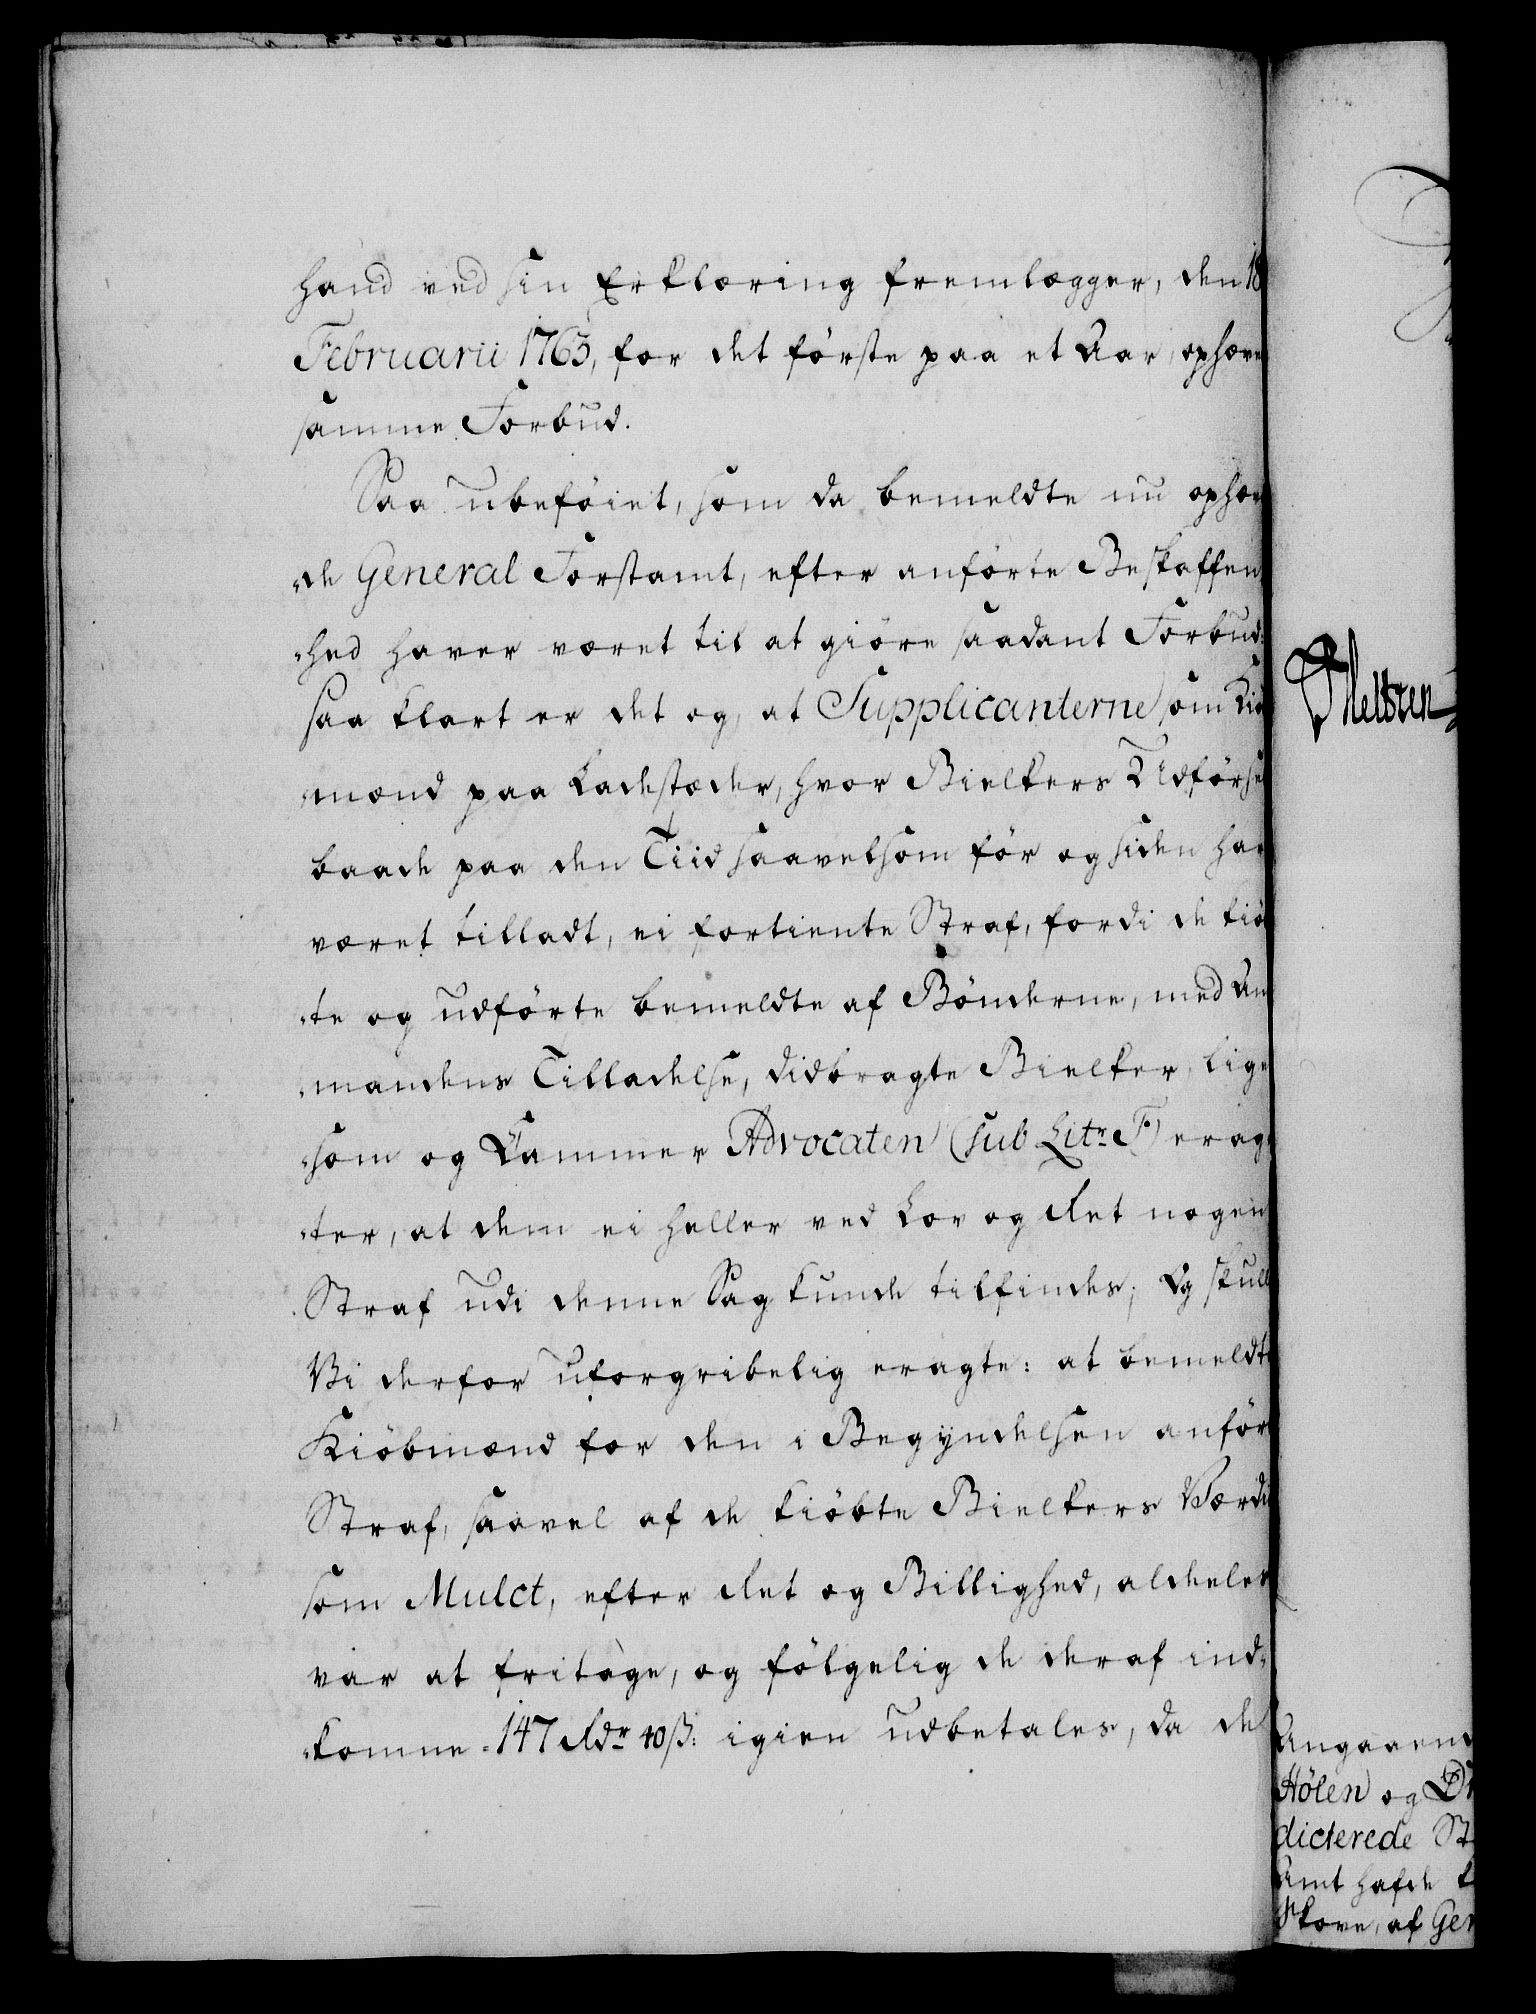 hand ved sin Erklæring fremlægger, den 18
Februarii 1765, for det förste paa et Aar, ophæve
samme Forbud.
Saa ubeföiet, som da bemeldte nu ophæve
de General Forstamt, efter anförte Beskaffen
hed haver været til at giöre saadant Forbud:
saa klart er det og, at Supplicanterne som Kiö
mænd paa Ladestæder, hvor Bielkers Udförse
baade paa den Tiid saavelsom för og siden har
været tilladt, ei fortiente Straf, fordi de kiöb
te og udförte bemeldte af Bönderne, med Am
mandens Tilladelse, didbragte Bielker, lige
som og Kammer Advocaten (sub Litr. F) erag
ter, at dem ei heller ved Lov og Ret nogen
Straf udi denne Sag kunde tilfindes; Og skull
Vi derfor uforgribelig eragte: at bemeldte
Kiöbmænd for den i Begyndelsen anför
Straf, saavel af de kiöbte Bielkers Værdi
som Mulct, efter Ret og Billighed, aldeles
var at fritage, og fölgelig de deraf ind-
komne 147 Rdr 40 ß: igien udbetales, da de
Angaaend
Hölen og Dr
dicterede St
Amt hafde k
Skove, af Gen